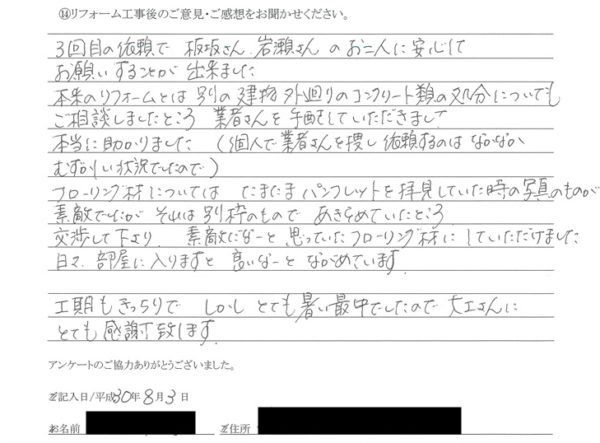 ⑭リフォーム工事後のご意見・ご感想をお聞かせください。
3回目の依頼で 板坂さん 岩瀬さん のお二人に安心して
お願いすることが 出来ました
本来のリフォームとは 別の 建物 外廻りのコンクリート類の処分についても
ご相談しましたところ 業者さんを手配していただきまして
本当に助かりました (個人で業者さんを捜し依頼するのは なかなか
むずかしい状況でしたので)
フローリング材については たまたま パンフレットを拝見していた時の写真のものが
素敵でしたが それは別枠のもので あきらめていたところ
交渉して下さり 素敵だなーと思っていたフローリング材にしていただけました
日々 部屋に入りますと 良いなーと ながめています
工期もきっちりで しかし とても暑い最中でしたので 大工さんに
とても感謝致します
アンケートのご協力ありがとうございました。
ご記入日/平成30年8月3日
お名前 ご住所